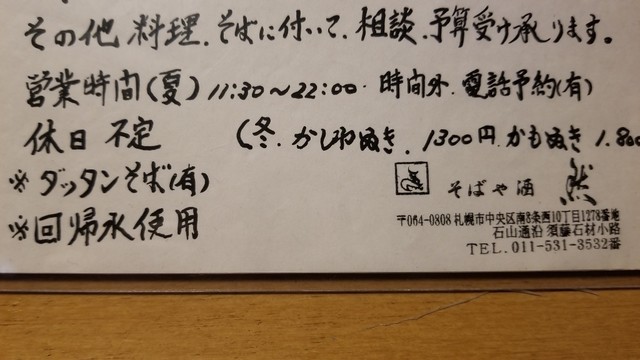 その他 料理.そばに付いて.相談.予算受け承ります。
営業時間(夏)11:30～22:00.時間外.電話予約(有)
休日 不定 (冬.かしわぬき.1300円.かもぬき 1.800
※ダッタンそば(有)
※回帰水使用
そばや酒 然
〒064-0808 札幌市中央区南8条西10丁目1278番地
石山通沿 須藤石材小路
TEL.011-531-3532番